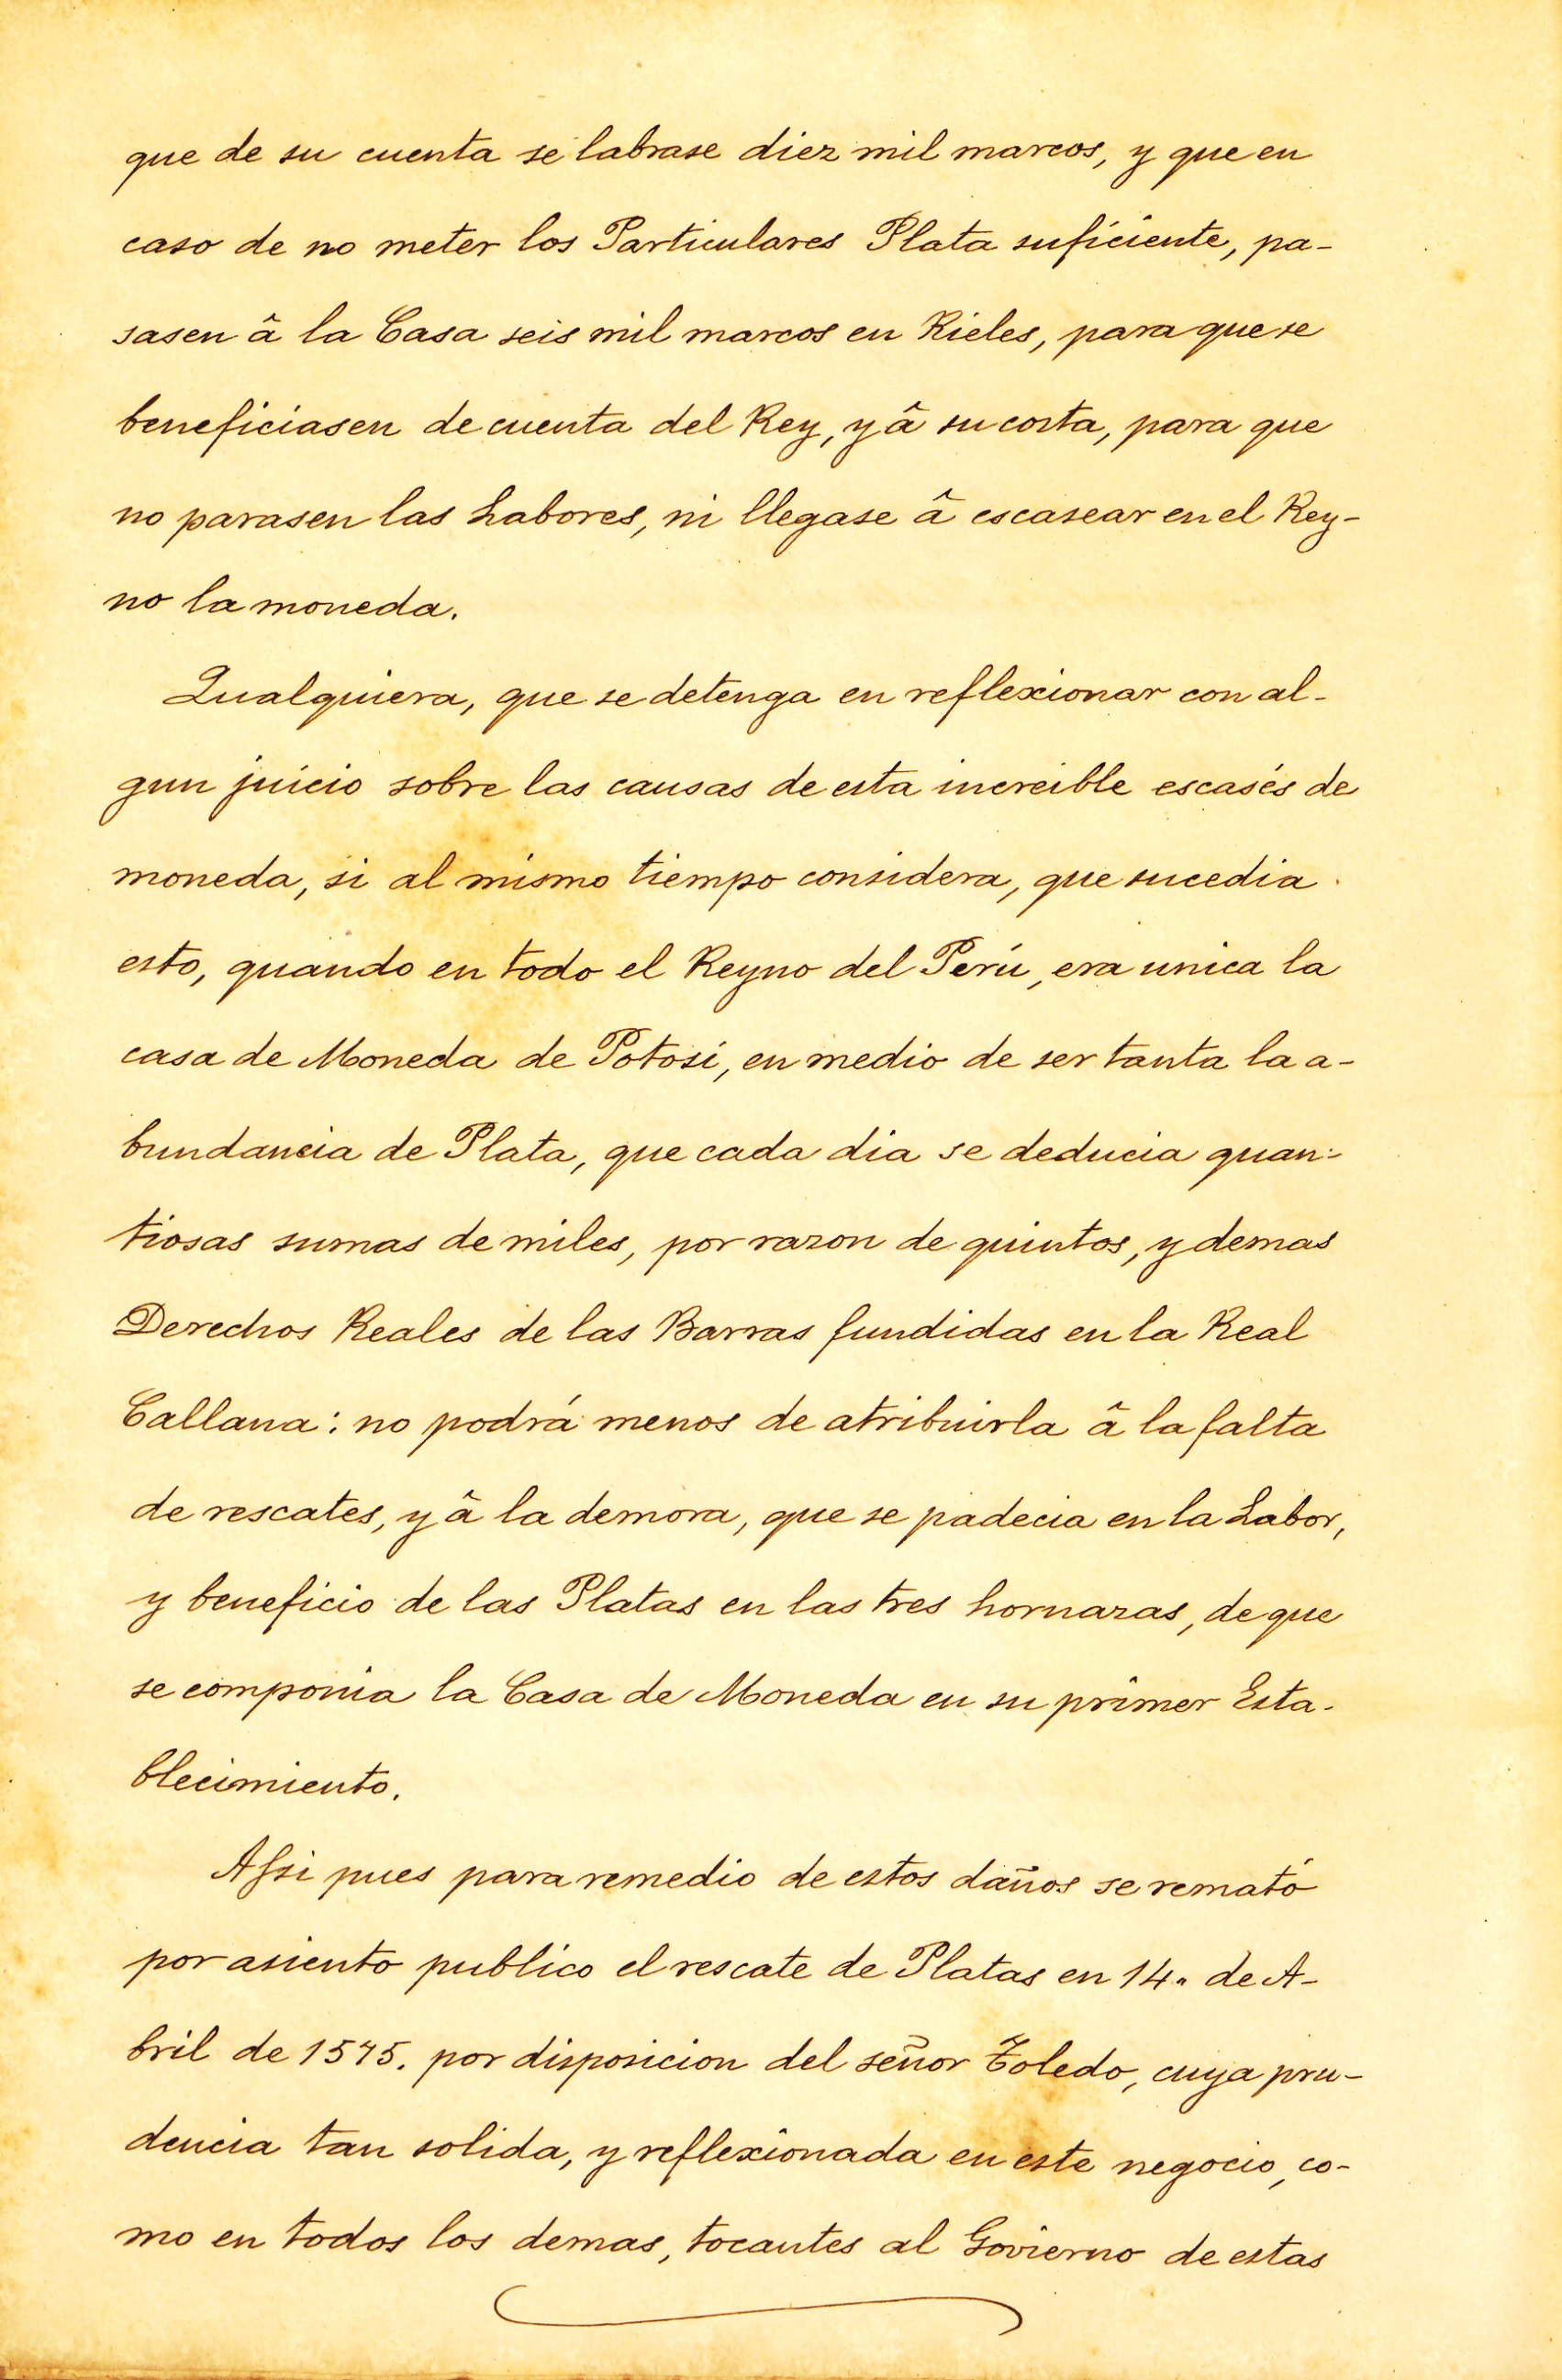 que de su cuenta se labrase diez mil marcos, y que en
caso de no meter los Particulares Plata suficiente, pa-
sasen â la Casa seis mil marcos en Rieles, para que se
beneficiasen de cuenta del Rey, y â su costa, para que
no parasen las Labores, ni llegase â escasear en el Rey-
no la moneda.
Qualquiera, que se detenga en reflexionar con al-
gun juicio sobre las causas de esta increible escasés de
moneda, si al mismo tiempo considera, que sucedia
esto, quando en todo el Reyno del Perú, era unica la
casa de Moneda de Potosi, en medio de ser tanta la a-
bundancia de Plata, que cada dia se deducia quan-
tiosas sumas de miles, por razon de quintos, y demas
Derechos Reales de las Barras fundidas en la Real
Callana: no podrá menos de atribuirla â la falta
de rescates, y â la demora, que se padecia en la Labor,
y beneficio de las Platas en las tres hornazas, de que
se componia la Casa de Moneda en su primer Esta-
blecimiento.
Assi pues para remedio de estos daños se remató
por asiento publico el rescate de Platas en 14. de A-
bril de 1575. por disposicion del señor Toledo, cuya pru-
dencia tan solida, y reflexionada en este negocio, co-
mo en todos los demas, tocantes al Govierno de estas